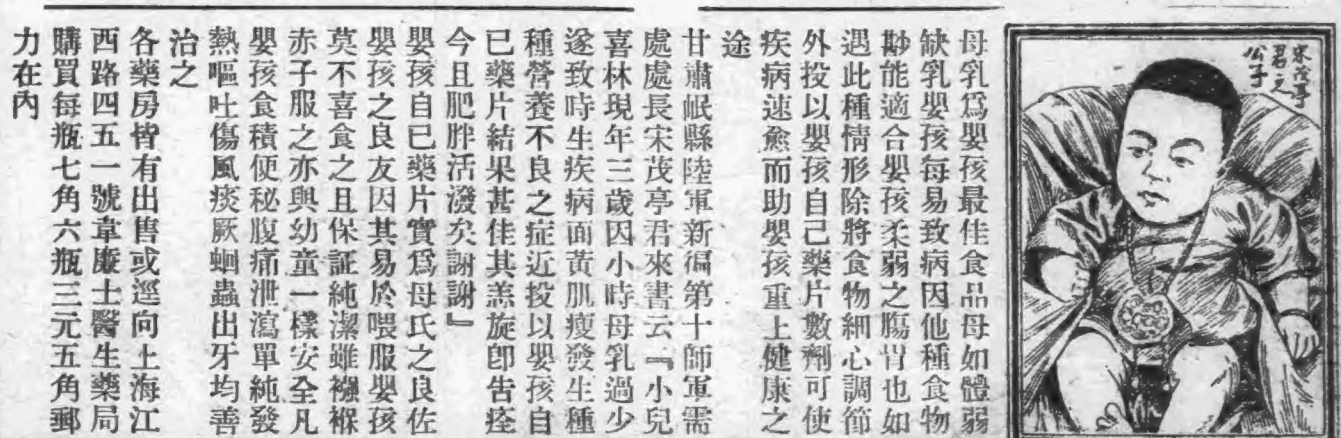 宋茂亭
君之
公子
母乳爲嬰孩最佳食品母如體弱
缺乳嬰孩每易致病因他種食物
尠能適合嬰孩柔弱之腸胃也如
遇此種情形除將食物細心調節
外投以嬰孩自己藥片數劑可使
疾病速愈而助嬰孩重上健康之
途
甘肅岷縣陸軍新徧第十師軍需
處處長宋茂亭君來書云『小兒
喜林現年三歲因小時母乳過少
遂致時生疾病面黃肌瘦發生種
種營養不良之症近投以嬰孩自
已藥片結果甚佳其恙旋卽告痊
今且肥胖活潑矣謝謝』
嬰孩自已藥片實爲母氏之良佐
嬰孩之良友因其易於喂服嬰孩
莫不喜食之且保証純潔雖襁褓
赤子服之亦與幼童一樣安全凡
嬰孩食積便秘腹痛泄瀉單純發
熱嘔吐傷風痰厥蛔蟲出牙均善
治之
各藥房皆有出售或逕向上海江
西路四五一號韋廉士醫生藥局
購買每瓶七角六瓶三元五角郵
力在內